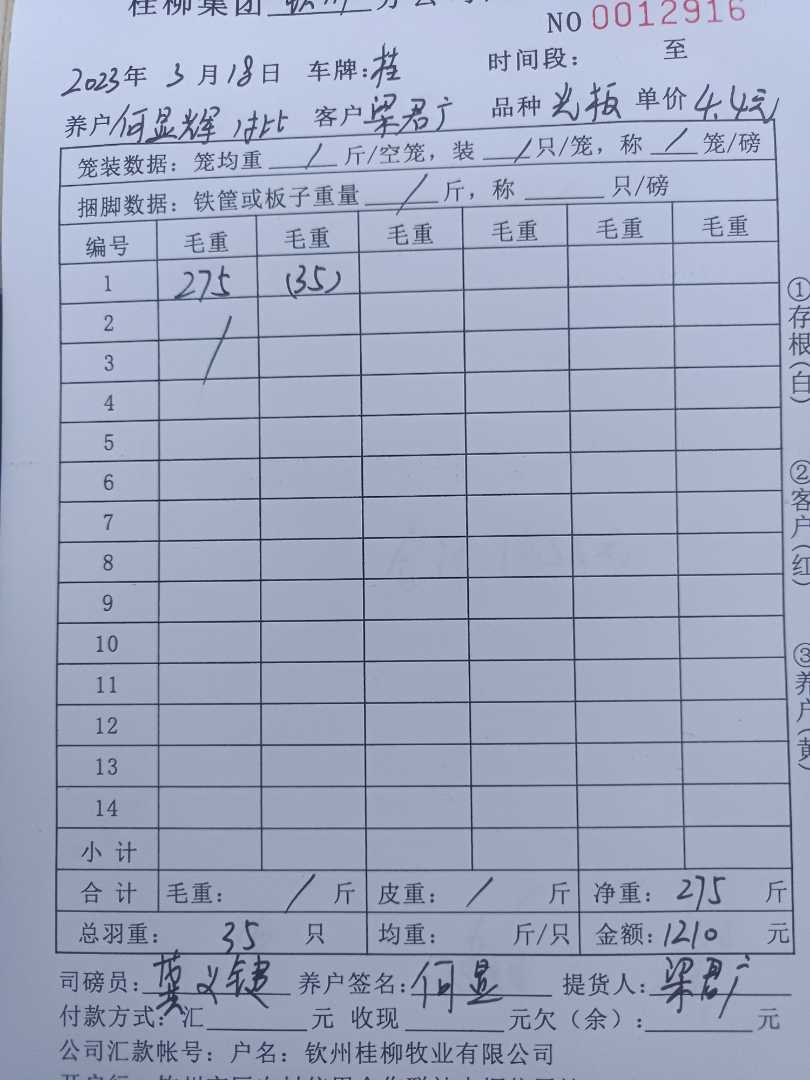 桂柳集团 钦州 分公司
NO 0012916
2023年 3月18日 车牌:桂 时间段: 至
养户何显辉 客户梁君广 品种光板 单价4.4元
笼装数据: 笼均重 / 斤/空笼, 装 / 只/笼, 称 / 笼/磅
捆脚数据: 铁筐或板子重量 / 斤, 称 只/磅
编号 毛重 毛重 毛重 毛重 毛重 毛重
1 275 (35)
2 /
3
4
5
6
7
8
9
10
11
12
13
14
小 计
合 计 毛重: / 斤 皮重: / 斤 净重: 275 斤
总羽重: 35 只 均重: 斤/只 金额:1210 元
司磅员: 养户签名:何显 提货人:梁君广
付款方式: 汇 元 收现 元欠(余): 元
公司汇款帐号: 户名: 钦州桂柳牧业有限公司
①存根(白)
②客户(红)
③养户(黄)